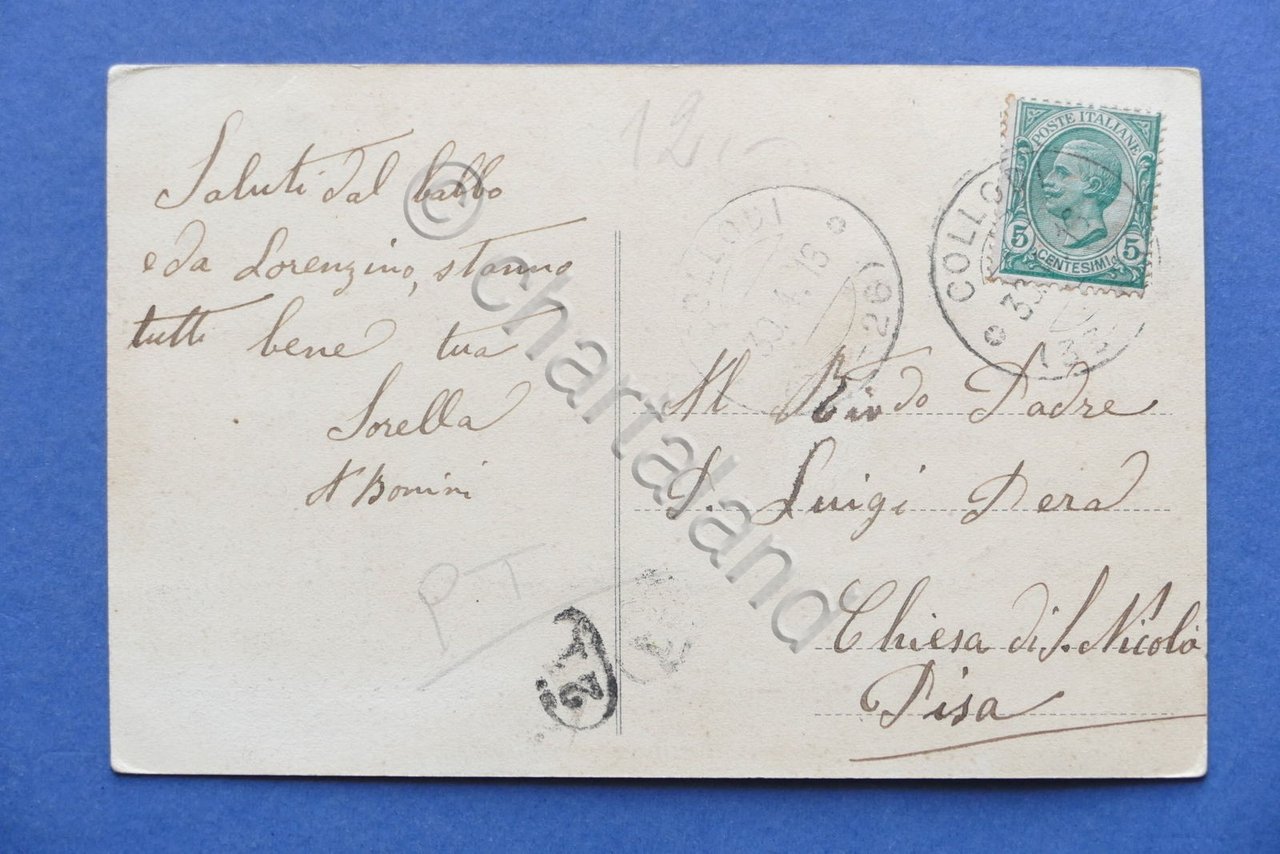 Saluti dal babbo
e da Lorenzino, stanno
tutti bene tua
Sorella
N Bonini
12,-
P T
COLLODI
30.4.16
26)
POSTE ITALIANE
5 5
CENTESIMI
COLLO
Al Rev do Padre
P. Luigi Pera
Chiesa di S. Nicolò
Pisa
© chartaland